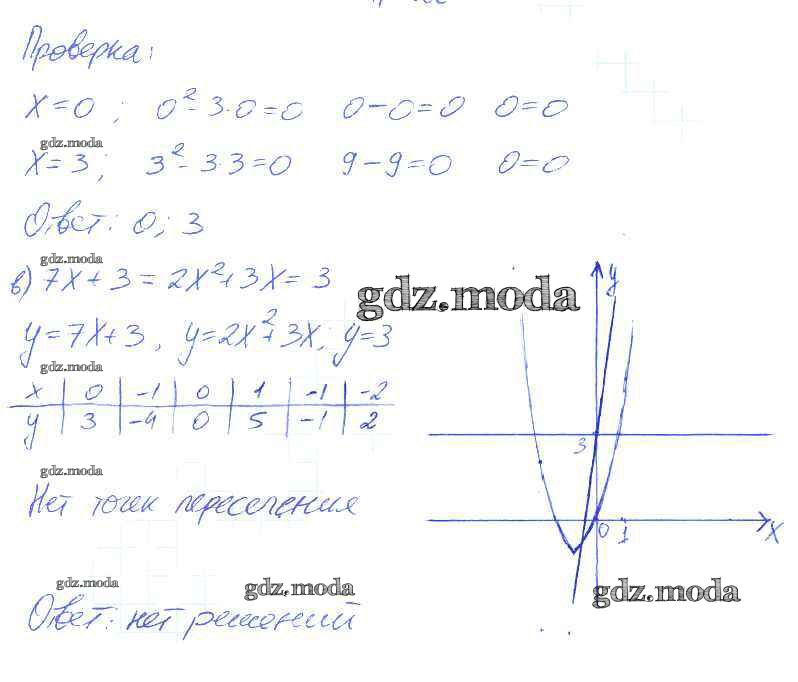 Проверка:
x=0; 0²-3·0=0 0-0=0 0=0
gdz.moda
x=3; 3²-3·3=0 9-9=0 0=0
Ответ: 0; 3
gdz.moda
в) 7x+3=2x²+3x=3
gdz.moda
y=7x+3, y=2x²+3x; y=3
gdz.moda
x 0 -1 0 1 -1 -2
y 3 -4 0 5 -1 2
gdz.moda
Нет точек пересечения
gdz.moda
gdz.moda
Ответ: нет решений
y
3
0 1 x
gdz.moda